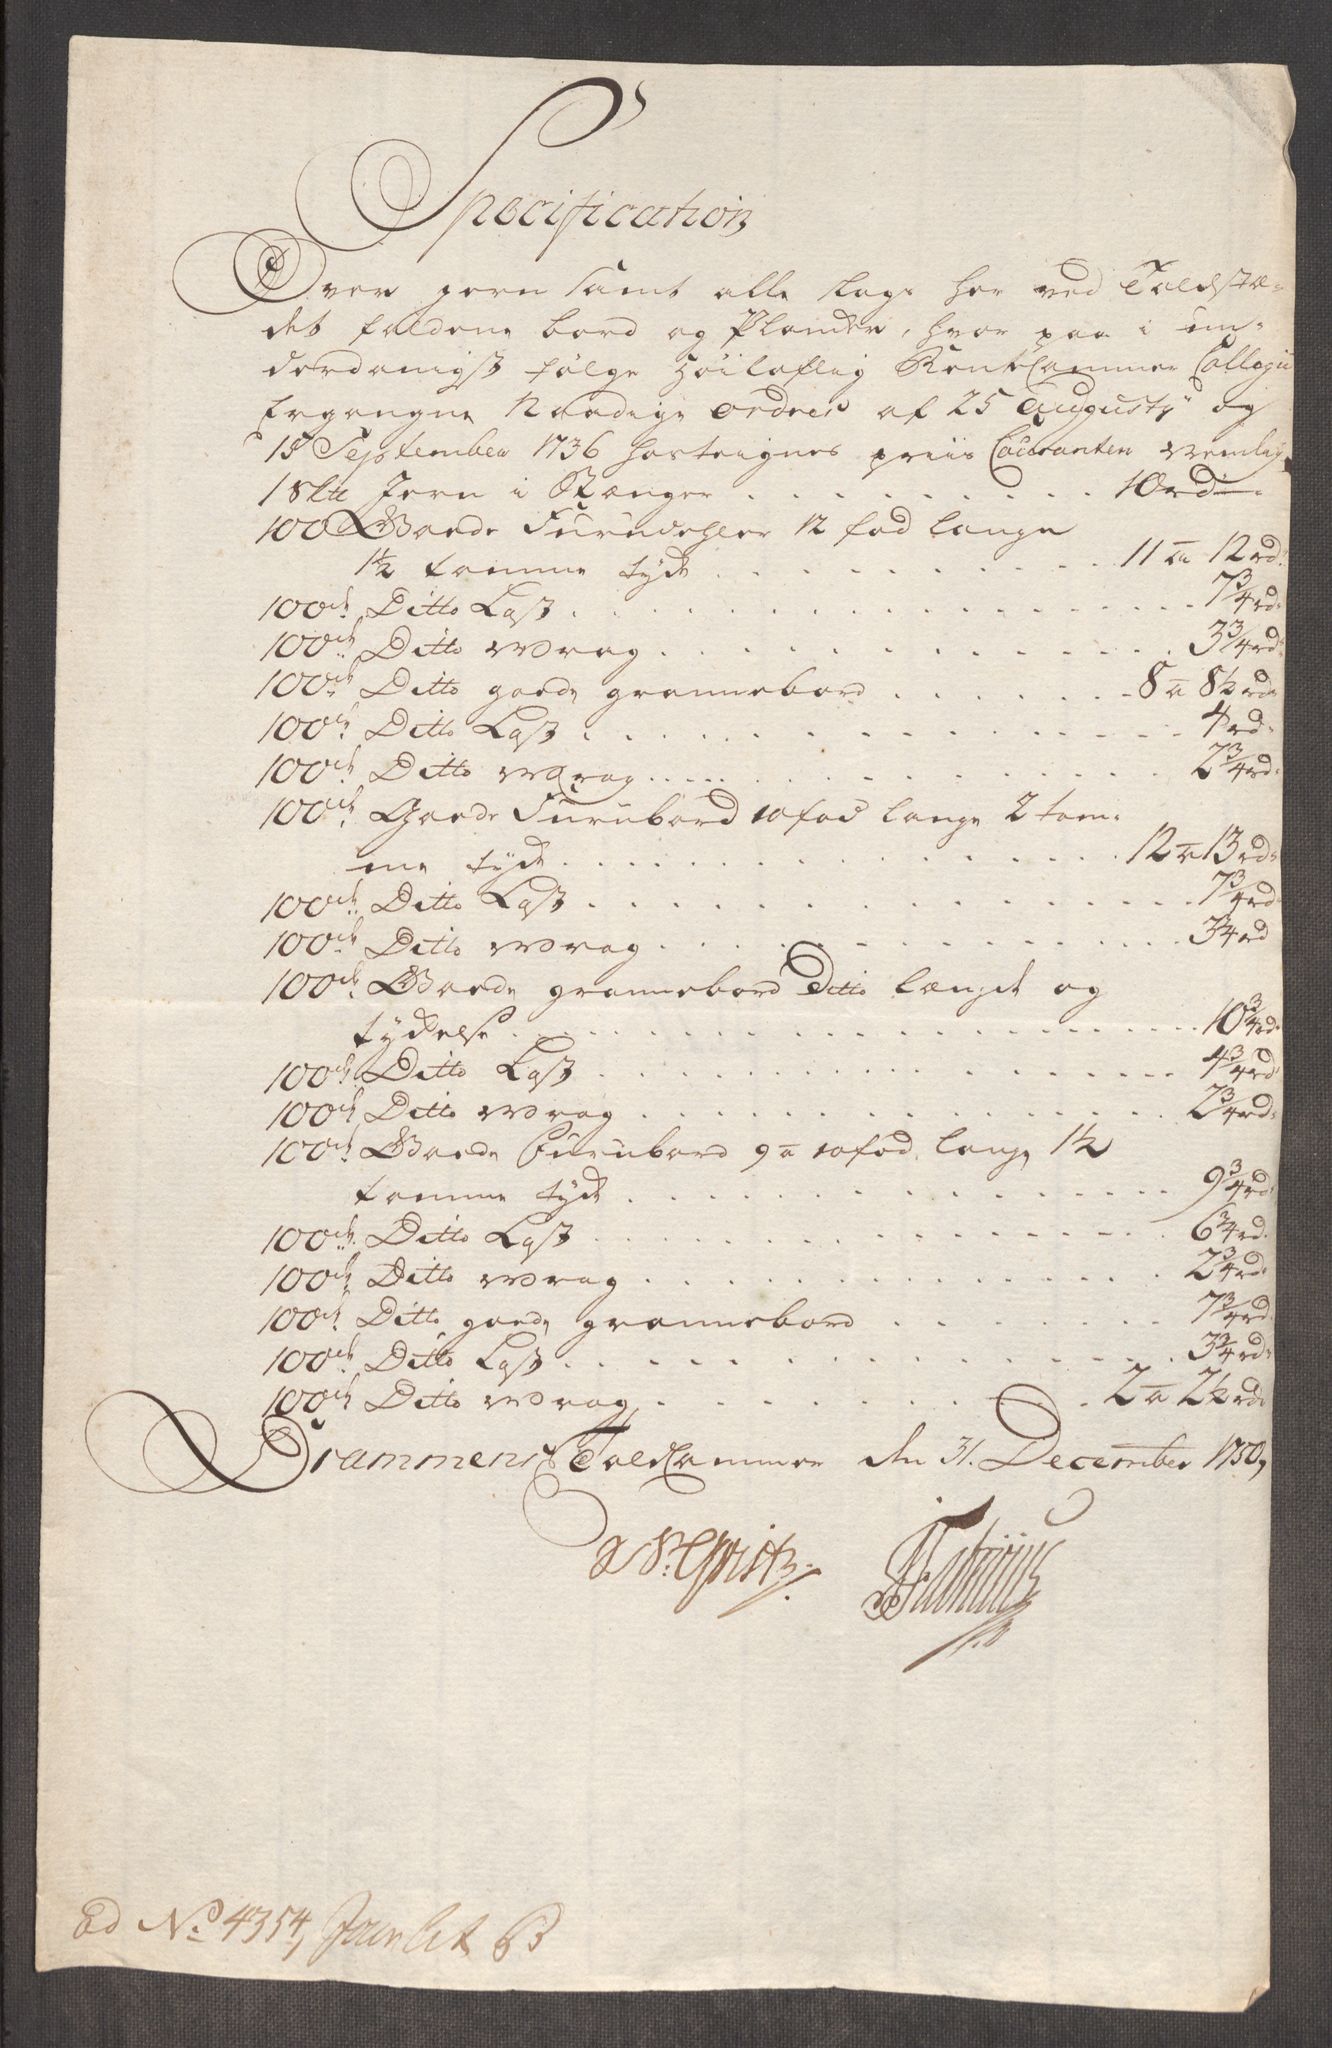 Specification
Over jern samt alle slags her ved Toldstæ-
det faldene bord og Plancker, hvor paa i un-
derdanigst følge Høiloflig RentCammer Collegii
Ergangne Naadige Ordres af 25 Augusty og
15 September 1736 hosteignes priis Couranten Nemlig
1 Sk℔ Jern i Stænger . . . . . . . . . 10 rd
100 Goede Furudehler 12 fod lange
1½ tomme tyck . . . . . . . . . . 11 a 12 rd
100de Ditto Last . . . . . . . . . . 7¾ rd
100de Ditto Wrag . . . . . . . . . . 3¾ rd
100de Ditto goede grannebord . . . . . . 8 a 8½ rd
100de Ditto Last . . . . . . . . . . 4 rd
100de Ditto Wrag . . . . . . . . . . 2¾ rd
100de Goede Furubord 10 fod lange 2 tom-
me tyck . . . . . . . . . . 12 a 13 rd
100de Ditto Last . . . . . . . . . . 7¾ rd
100de Ditto Wrag . . . . . . . . . . 3¾ rd
100de Goede grannebord Ditto længde og
tyckelse . . . . . . . . . . 10¾ rd
100de Ditto Last . . . . . . . . . . 4¾ rd
100de Ditto Wrag . . . . . . . . . . 2¾ rd
100de Goede Furubord 9 a 10 fod lange 1½
tomme tyck . . . . . . . . . . 9¾ rd
100de Ditto Last . . . . . . . . . . 6¾ rd
100de Ditto Wrag . . . . . . . . . . 2¾ rd
100de Ditto goede grannebord . . . . . . 7¾ rd
100de Ditto Last . . . . . . . . . . 3¾ rd
100de Ditto Wrag . . . . . . . . . . 2 a 2½ rd
Drammens ToldCammer den 31. December 1750,
No 4354,